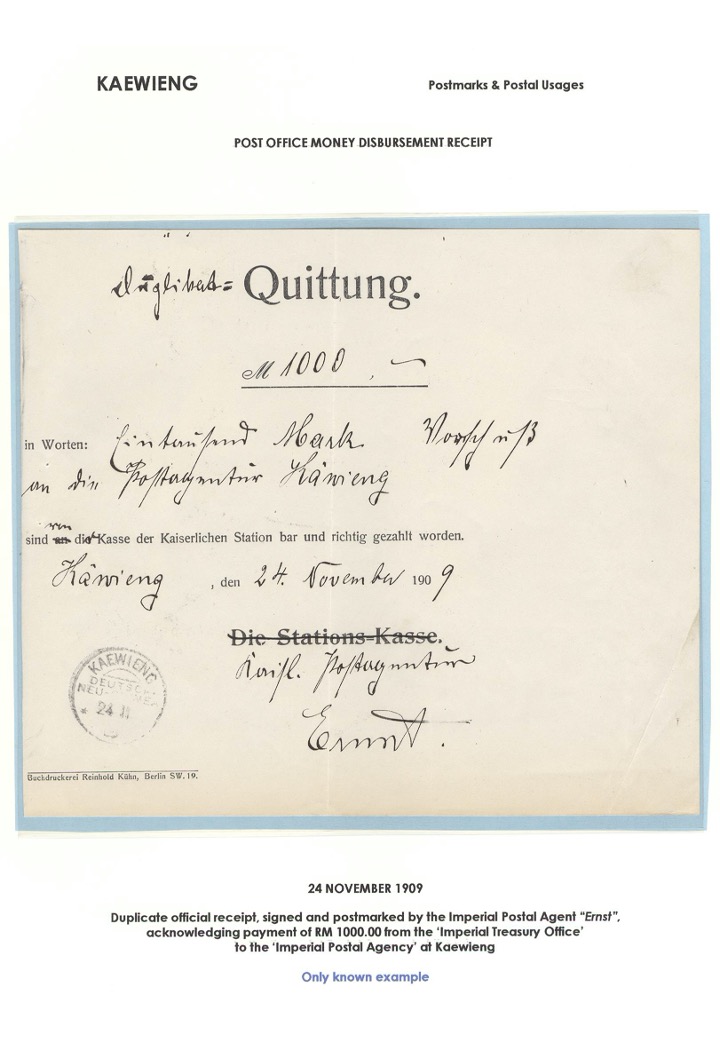 KAEWIENG
Postmarks & Postal Usages
POST OFFICE MONEY DISBURSEMENT RECEIPT
Duplikat= Quittung.
M 1000,—
in Worten: Eintausend Mark Vorschuß
an die Postagentur Käwieng
von
sind an die Kasse der Kaiserlichen Station bar und richtig gezahlt worden.
Käwieng, den 24. November 1909
Die Stations-Kasse.
Kaisl. Postagentur
Ernst.
KAEWIENG
DEUTSCH-
NEU-GUINEA
* 24 11
Buchdruckerei Reinhold Kühn, Berlin SW. 19.
24 NOVEMBER 1909
Duplicate official receipt, signed and postmarked by the Imperial Postal Agent “Ernst”,
acknowledging payment of RM 1000.00 from the ‘Imperial Treasury Office’
to the ‘Imperial Postal Agency’ at Kaewieng
Only known example